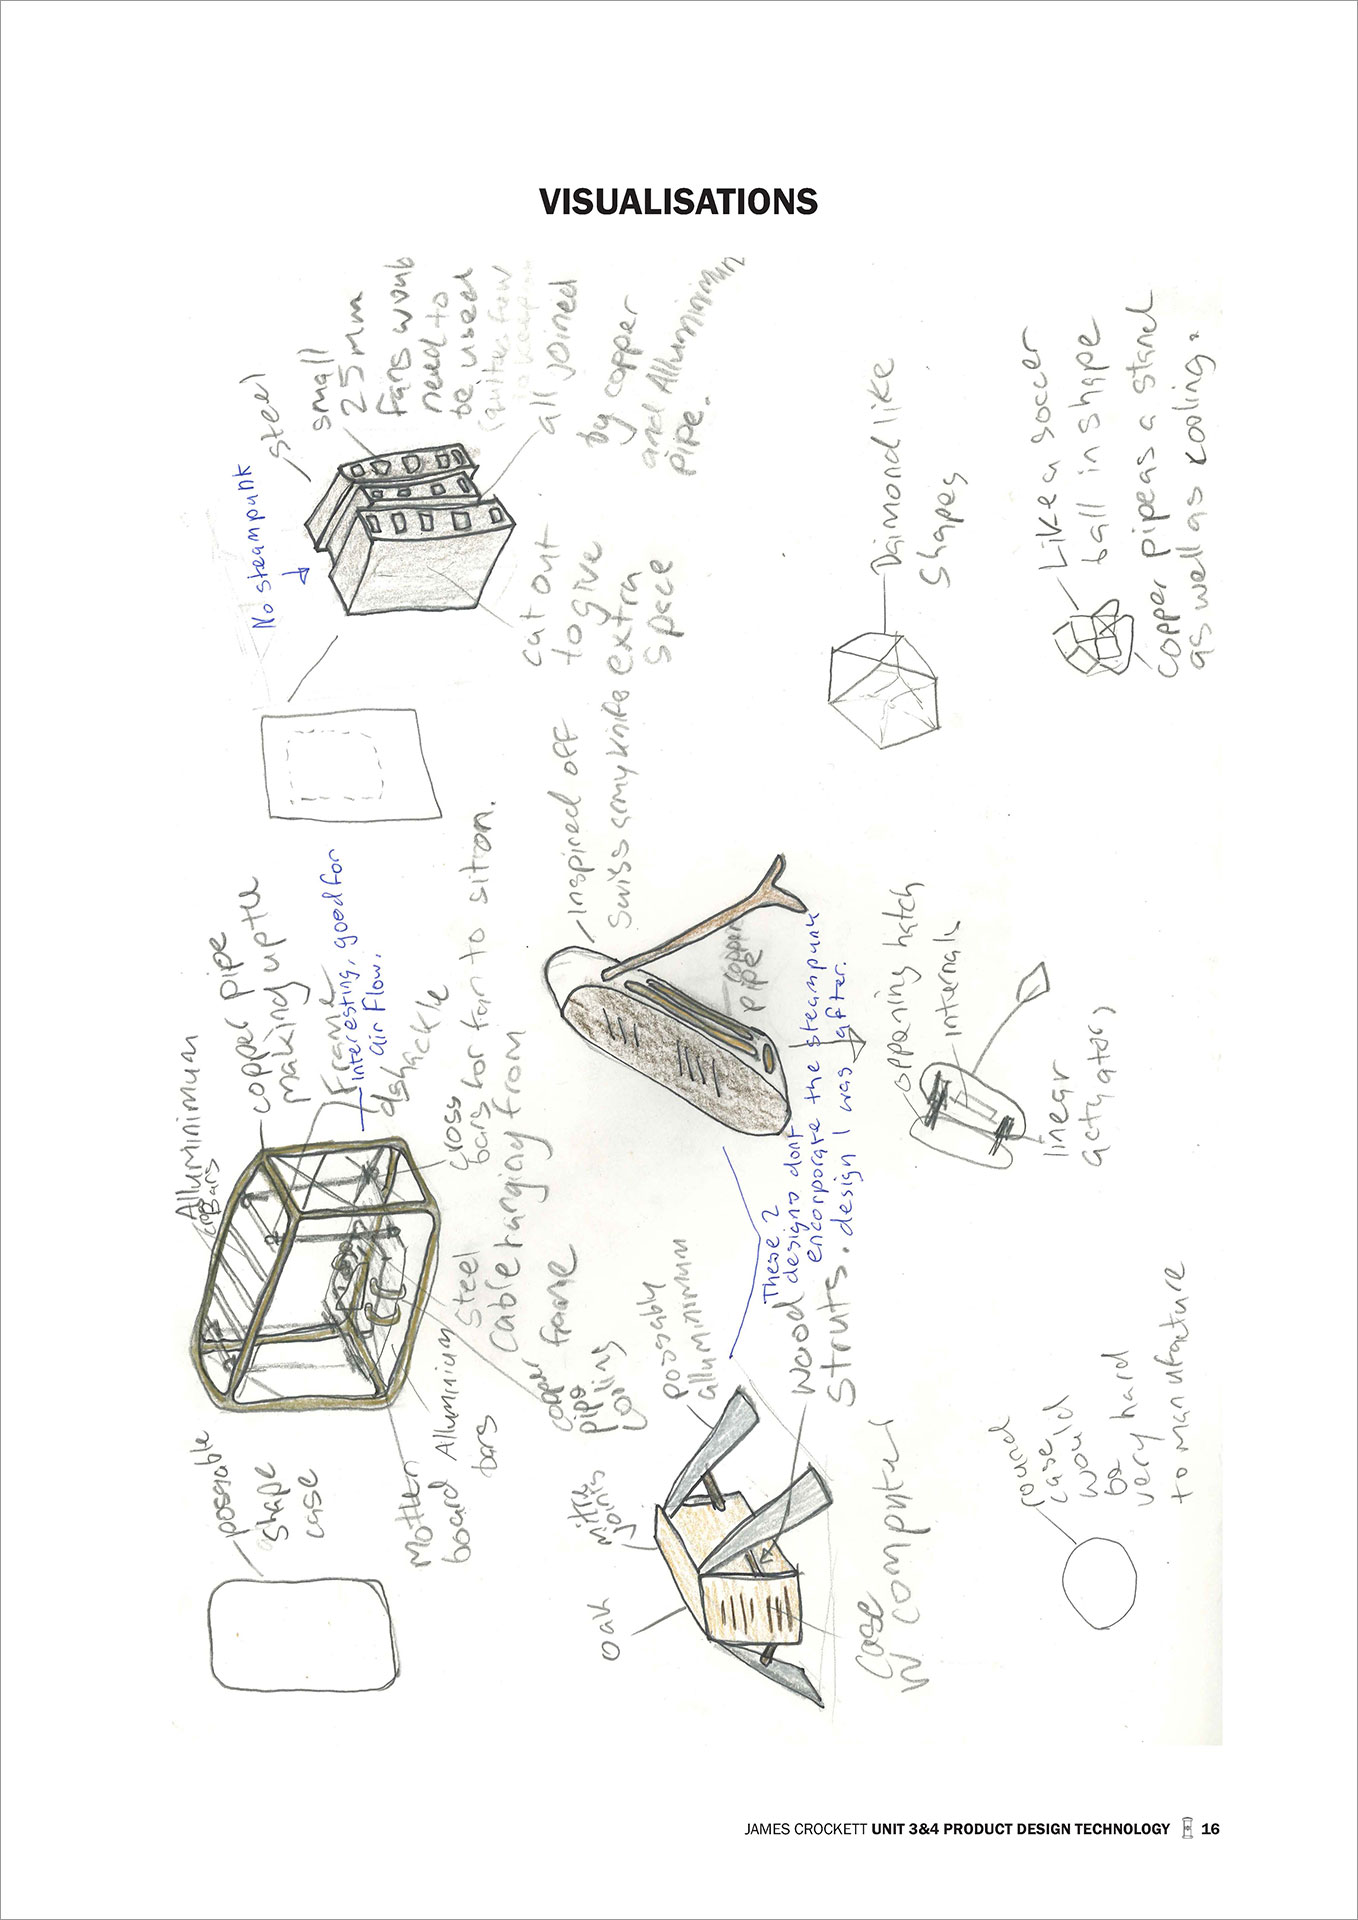 VISUALISATIONS
possable
shape
case
Alluminimum
cross
Bars
copper pipe
making up the
Frame
Interesting, good for
air flow.
dshackle
cross
bars for fan to sit on.
Steel
cable hanging from
frame
Mother
board
Alluminium
bars
copper
pipe
piping
cooling
No steampunk
steel
small
25mm
fans would
need to
be used
all joined
by copper
and Alluminimum
pipe.
cut out
to give
extra
space
oak
mitre
joints
possably
alluminimum
wood
struts.
case
w computer
These 2
designs dont
encorporate the steampunk
design I was after.
inspired off
swiss army knife
copper
pipe
oppaning hatch
internals
linear
actyators
Daimond like
shapes
Like a soccer
ball in shape
copper pipe as a stand
as well as cooling.
round
case
would
be
very hard
to manufacture
JAMES CROCKETT UNIT 3&4 PRODUCT DESIGN TECHNOLOGY 16